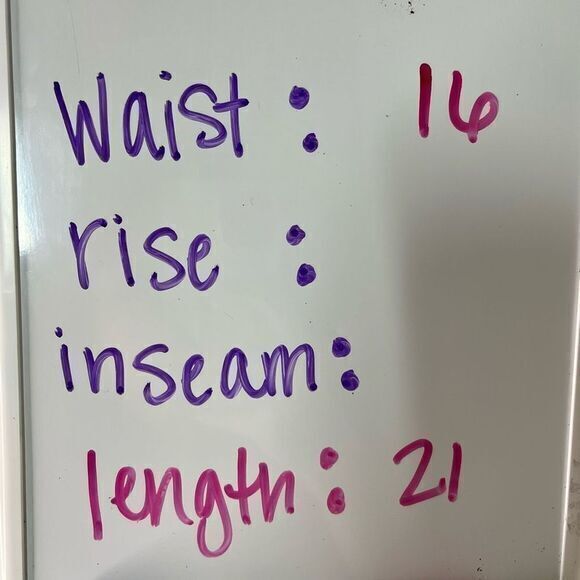 Waist: 16
rise:
inseam:
length: 21